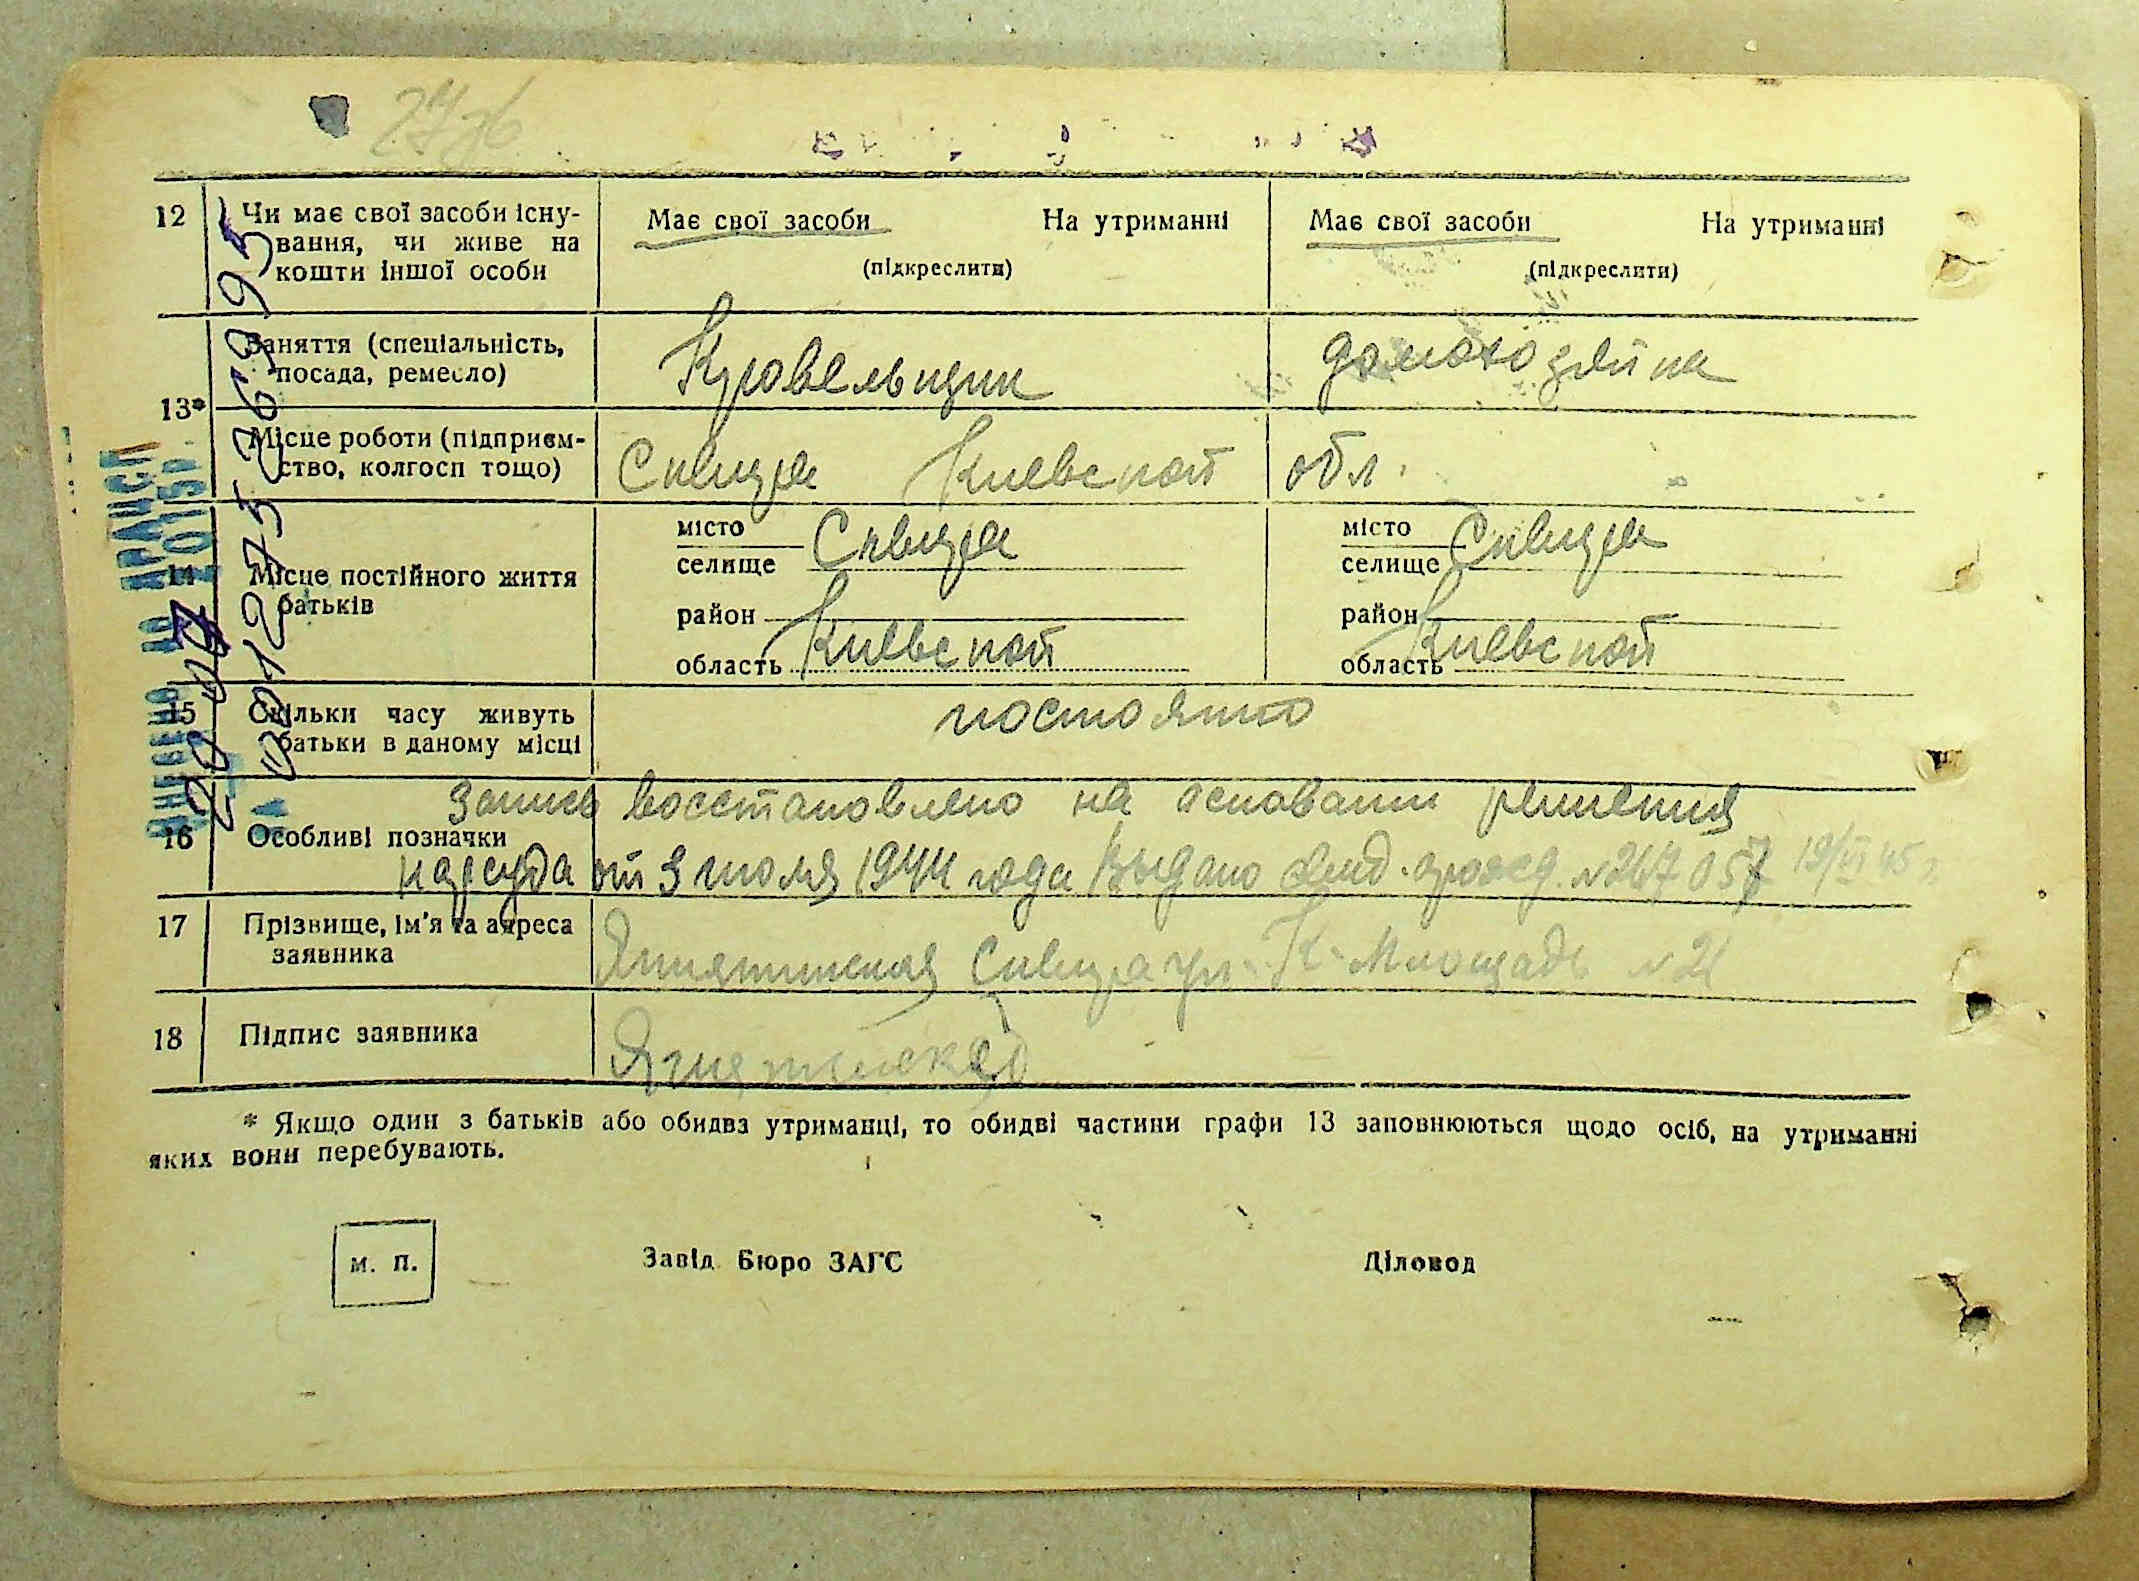 27зв
12 Чи має свої засоби існу- Має свої засоби На утриманні Має свої засоби На утриманні
вання, чи живе на
кошти іншої особи (підкреслити) (підкреслити)
13* Заняття (спеціальність, Кровельщик домохозяйка
посада, ремесло)
Місце роботи (підприєм- Сквира Киевской обл.
ство, колгосп тощо)
14 Місце постійного життя місто Сквира місто Сквира
батьків селище селище
район район
область Киевской область Киевской
15 Скільки часу живуть постоянно
батьки в даному місці
Запись восстановлено на основании решения
16 Особливі позначки
нарсуда от 3 июля 1944 года Выдано свид. рожд. №267057 19/VI 45 г
17 Прізвище, ім'я та адреса
заявника Сквира ул. К. Площадь №21
18 Підпис заявника
* Якщо один з батьків або обидва утриманці, то обидві частини графи 13 заповнюються щодо осіб, на утриманні
яких вони перебувають.
м. п. Завід Бюро ЗАГС Діловод
ВНЕСЕНО ДО ДРАЦСП
2015р
00127526199 95